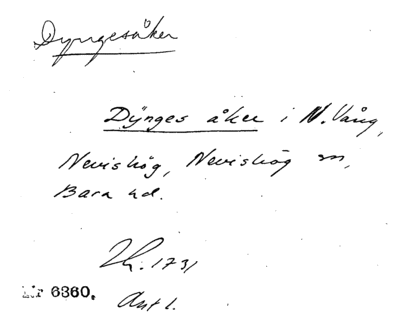 Dyngesåker
Dÿnges åker i N. Vång,
Nevishög, Nevishög sn,
Bara hd.
Lh. 1731
Lir 6360.
Ant l.